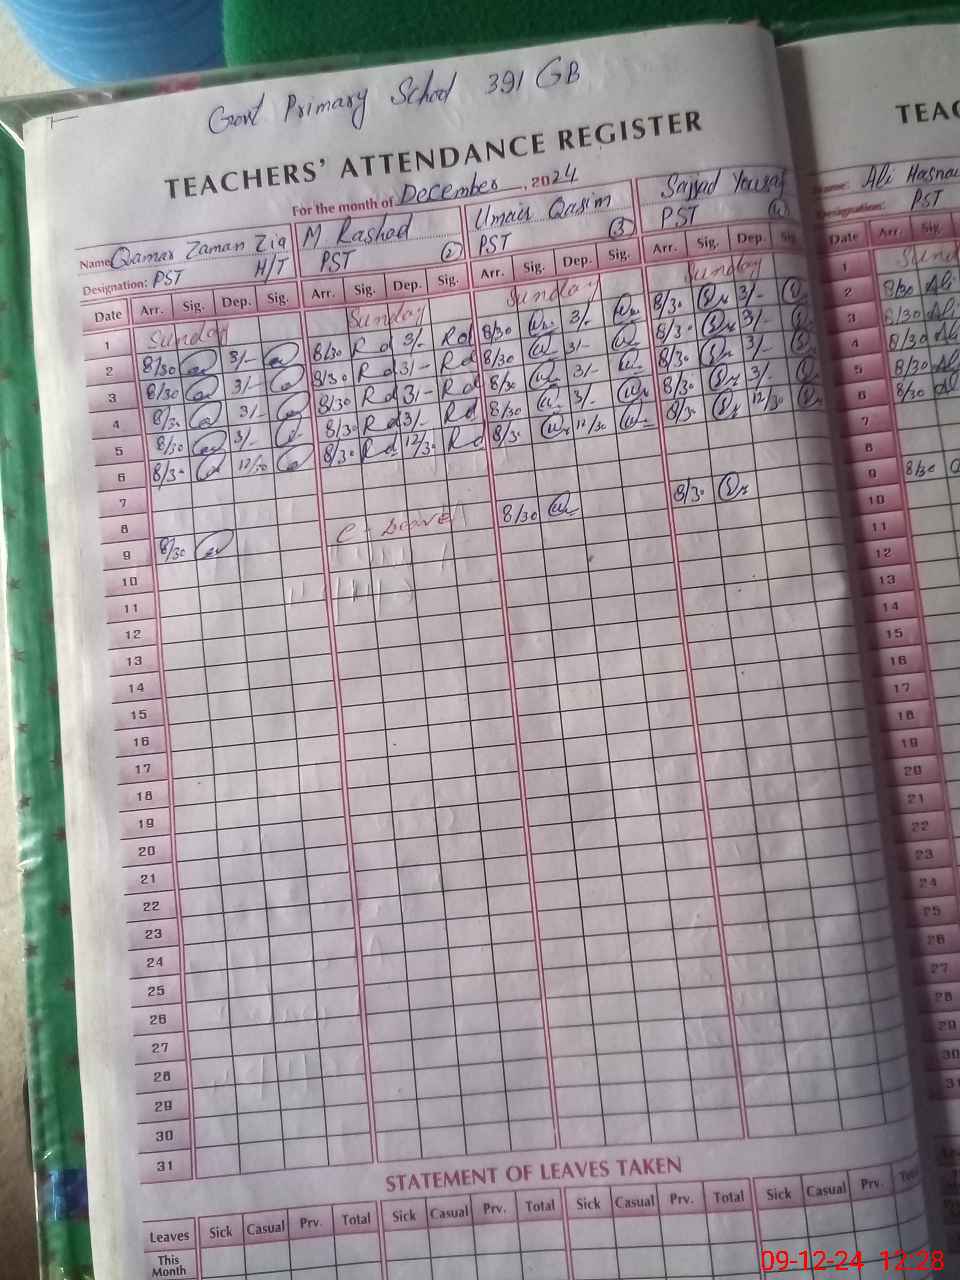 Govt Primary School 391 GB
TEACHERS' ATTENDANCE REGISTER
For the month of December, 2024
Name: Qamar Zaman Zia M Rashad Umair Qasim Sajjad Yousaf
Designation: PST H/T PST (2) PST (3) PST (4)
Date Arr. Sig. Dep. Sig. Arr. Sig. Dep. Sig. Arr. Sig. Dep. Sig. Arr. Sig. Dep. Sig.
1 Sunday Sunday Sunday Sunday
2 8/30 3/- 8/30 Rd 3/- Rd 8/30 3/- 8/30 3/-
3 8/30 3/- 8/30 Rd 3/- Rd 8/30 3/- 8/30 3/-
4 8/30 3/- 8/30 Rd 3/- Rd 8/30 3/- 8/30 3/-
5 8/30 3/- 8/30 Rd 3/- Rd 8/30 3/- 8/30 3/-
6 8/30 12/30 8/30 Rd 12/30 Rd 8/30 12/30 8/30 12/30
7
8
9 8/30 C-Leave 8/30 8/30
10
11
12
13
14
15
16
17
18
19
20
21
22
23
24
25
26
27
28
29
30
31
STATEMENT OF LEAVES TAKEN
Leaves Sick Casual Prv. Total Sick Casual Prv. Total Sick Casual Prv. Total Sick Casual Prv.
This
Month
TEAC
Name: Ali Hasna
Designation: PST
Date Arr. Sig.
1
2 8/30 Ali
3 8/30 Ali
4 8/30 Ali
5 8/30 Ali
6 8/30 Ali
7
8
9 8/30
10
11
12
13
14
15
16
17
18
19
20
21
22
23
24
25
26
27
28
29
30
31
09-12-24 12:28